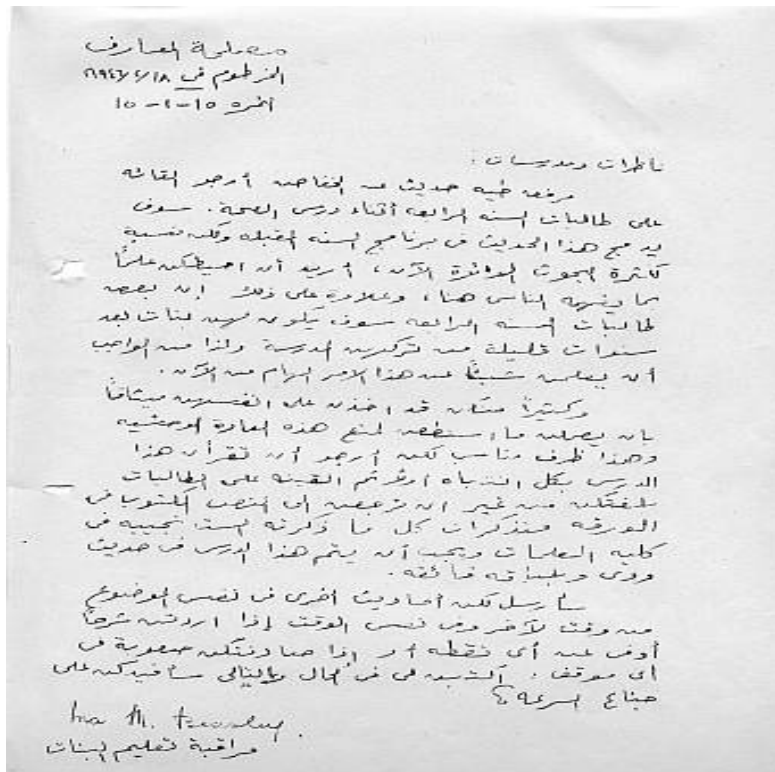 مصلحة المعارف
الخرطوم في ١٩٤٦/٢/١٨
النمرة ١٥-٢-١٥
ناظرات ومدرسات :
مرفق طيه حديث عن الخفاض أرجو القائه
على طالبات السنه الرابعه أثناء درس الصحة. سوف
يدمج هذا الحديث في برنامج السنه المقبله ولكن نسبة
لكثرة البحوث الدائرة الآن، أريد أن احيطكن علماً
بما يفهمه الناس هنا، وعلاوة على ذلك ان بعض
طالبات السنه الرابعه سوف يكون لهن بنات بعد
سنوات قليلة من تركهن المدرسة ولذا من الواجب
أن يعلمن شيئاً عن هذا الامر الهام من الآن.
وكثيراً منكن قد اخذن على انفسهن ميثاقاً
بان يعملن ما استطعن لمنع هذه العادة الوحشيه
وهذا ظرف مناسب لكن أرجو أن تقرأن هذا
الدرس بكل انتباه أولاً ثم القينه على الطالبات
بلغتكن من غير ان ترجعن الى النص المكتوب في
الورقه متذكرات كل ما ذكرته الست نجيبه في
كلية المعلمات ويجب أن يتم هذا الدرس في حديث
ودى وبلباقه فائقه.
سأرسل لكن أحاديث أخرى في نفس الموضوع
من وقت لآخر وفى نفس الوقت إذا اردتن شرحاً
أوفى عن أى نقطه أو إذا صادفتكن صعوبة في
أى موقف، اكتبن لي في الحال وبالتالى سأفيدكن على
جناح السرعه
Ina M.
مراقبة تعليم البنات